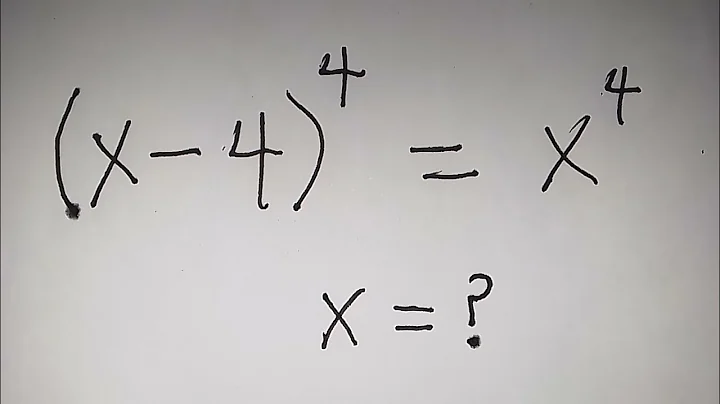 (x-4)⁴ = x⁴
x = ?